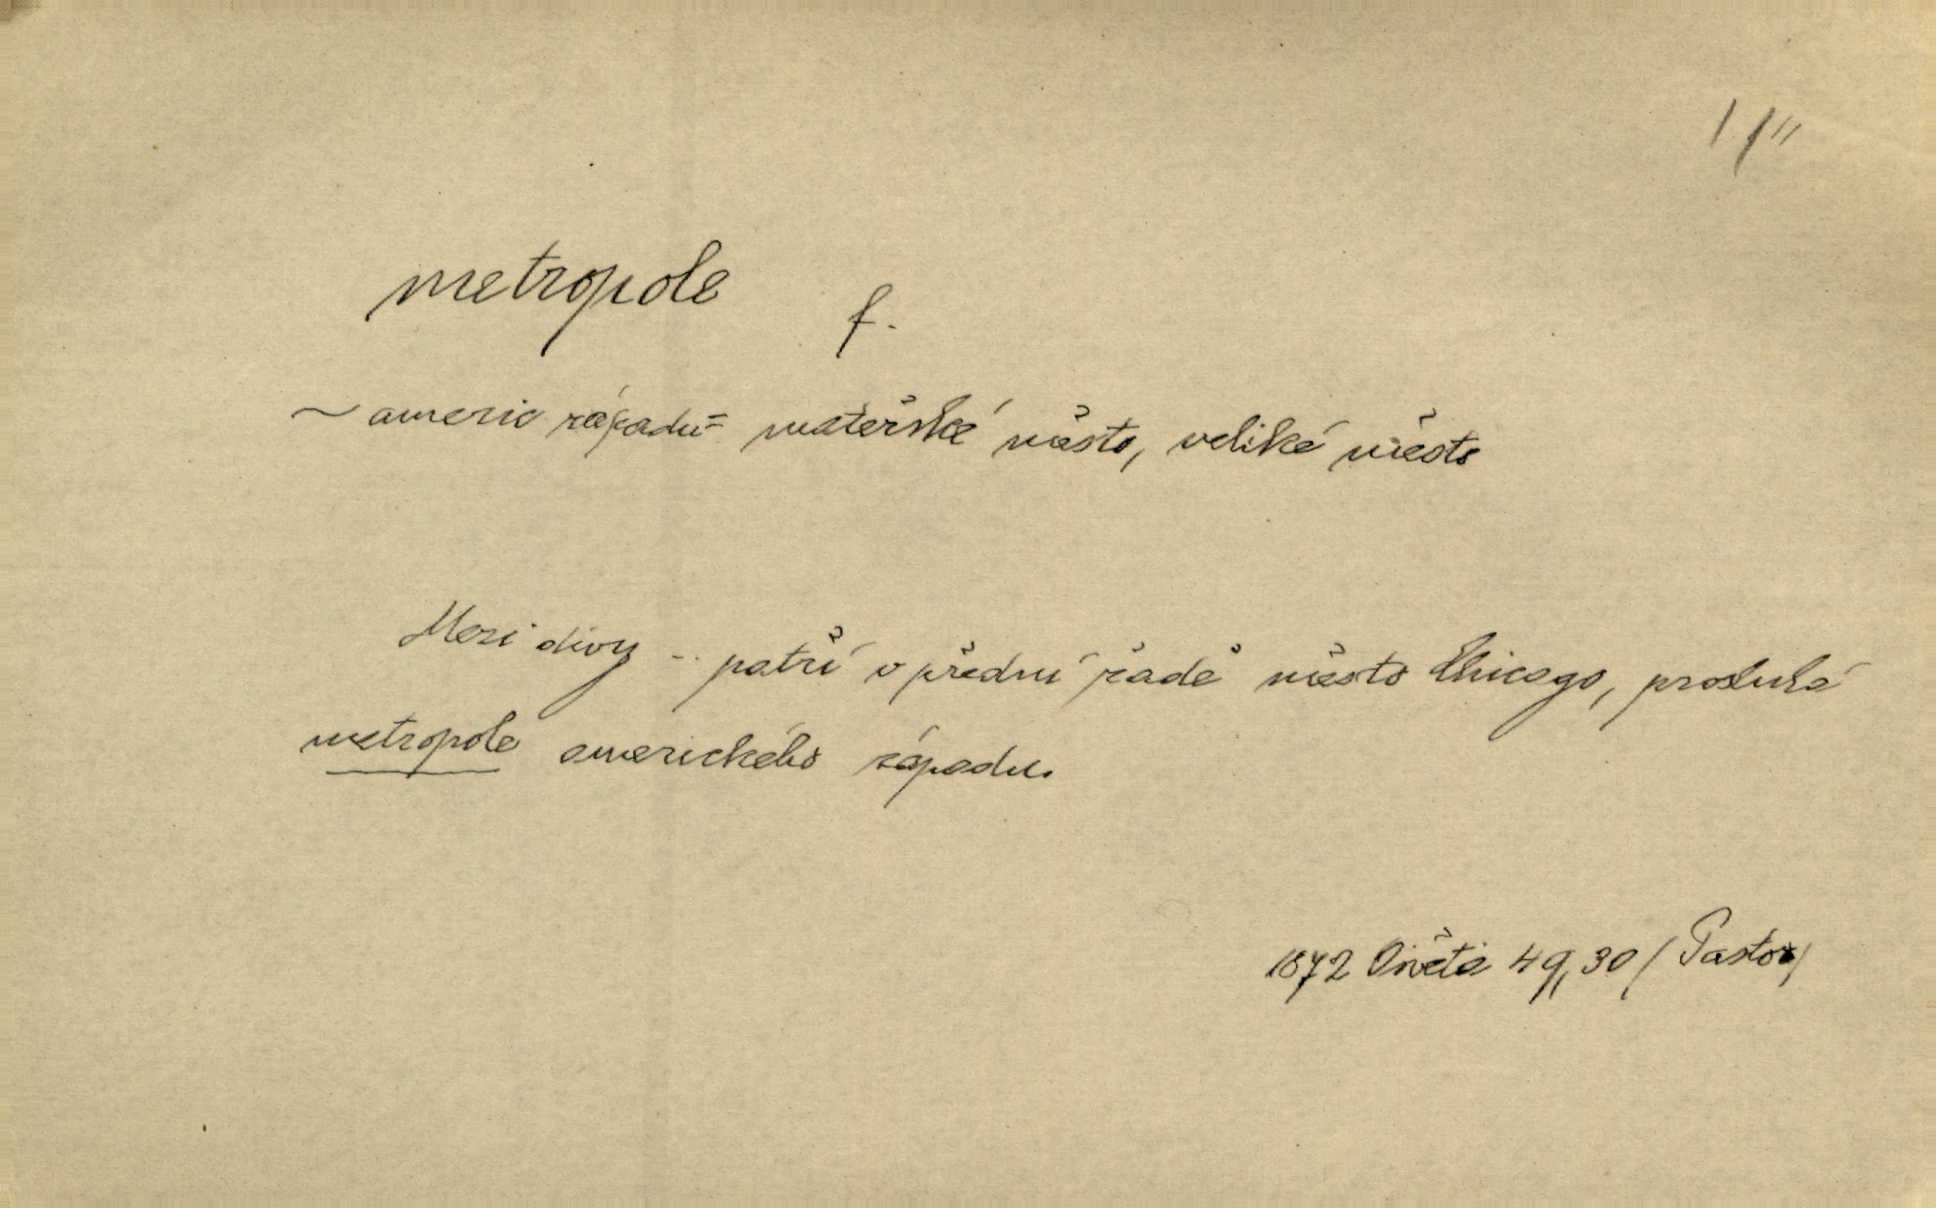 metropole f.
~ americ západu = mateřské město, veliké město
Mezi divy .. patří v přední řadě město Chicago, proslulá
metropole amerického západu.
1872 Osvěta 49,30 (Pastor)